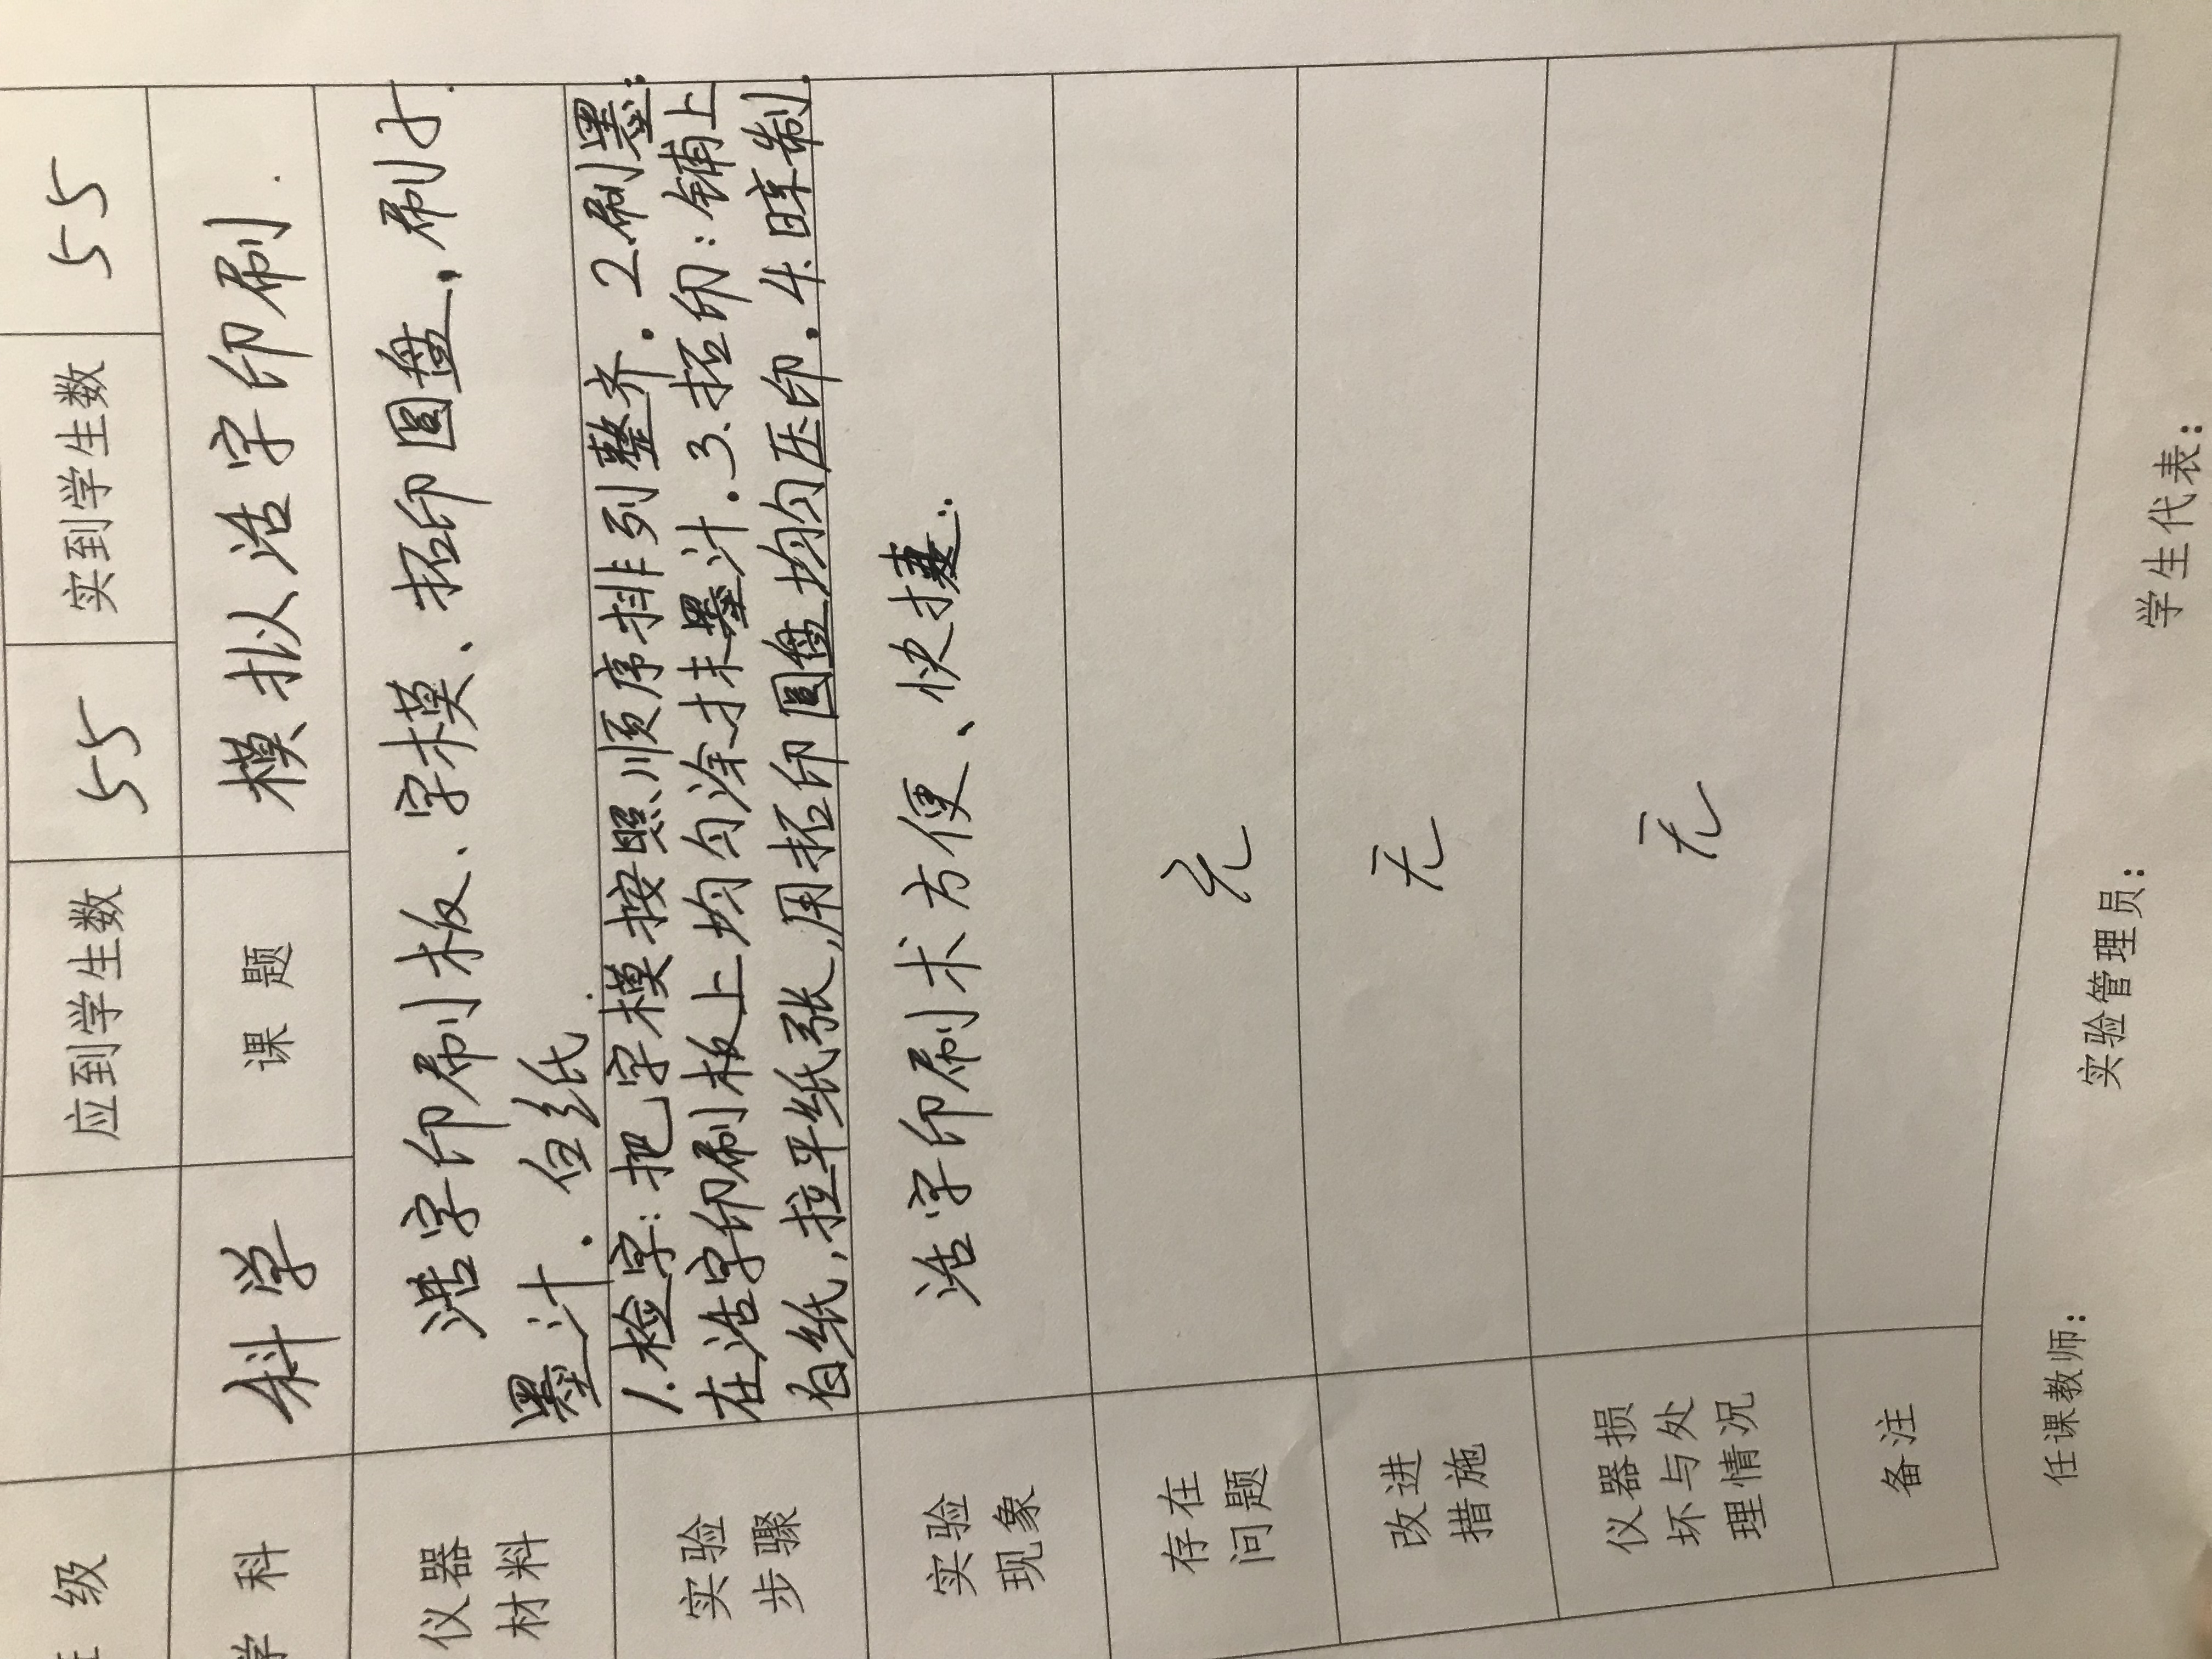 级 应到学生数 55 实到学生数 55
学 科 科学 课 题 模拟活字印刷.
仪器
材料
活字印刷板、字模、拓印圆盘、刷子.
墨汁. 白纸.
实验
步骤
1.检字:把字模按照顺序排列整齐. 2.刷墨:
在活字印刷板上均匀涂抹墨汁.3.拓印:铺上
白纸,拉平纸张,用拓印圆盘均匀压印.4.晾制.
实验
现象
活字印刷术方便、快捷.
存在
问题
无
改进
措施
无
仪器损
坏与处
理情况
无
备注
任课教师: 实验管理员: 学生代表: